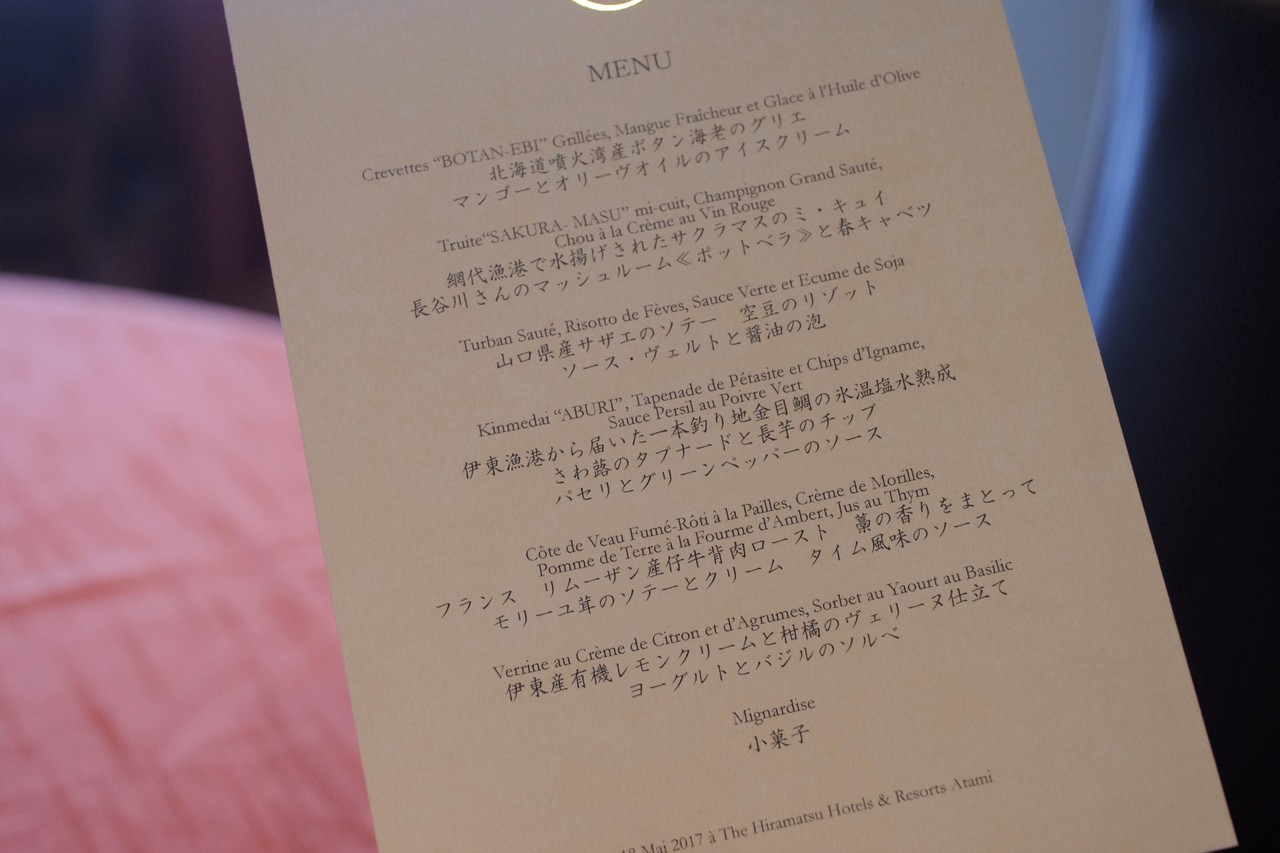 MENU
Crevettes “BOTAN-EBI” Grillées, Mangue Fraîcheur et Glace à l’Huile d’Olive
北海道噴火湾産ボタン海老のグリエ
マンゴーとオリーヴオイルのアイスクリーム
Truite“SAKURA- MASU” mi-cuit, Champignon Grand Sauté,
Chou à la Crème au Vin Rouge
網代漁港で水揚げされたサクラマスのミ・キュイ
長谷川さんのマッシュルーム《ポットベラ》と春キャベツ
Turban Sauté, Risotto de Fèves, Sauce Verte et Ecume de Soja
山口県産サザエのソテー　空豆のリゾット
ソース・ヴェルトと醤油の泡
Kinmedai “ABURI”, Tapenade de Pétasite et Chips d’Igname,
Sauce Persil au Poivre Vert
伊東漁港から届いた一本釣り地金目鯛の氷温塩水熟成
さわ蕗のタプナードと長芋のチップ
パセリとグリーンペッパーのソース
Côte de Veau Fumé-Rôti à la Pailles, Crème de Morilles,
Pomme de Terre à la Fourme d’Ambert, Jus au Thym
フランス　リムーザン産仔牛背肉ロースト　藁の香りをまとって
モリーユ茸のソテーとクリーム　タイム風味のソース
Verrine au Crème de Citron et d’Agrumes, Sorbet au Yaourt au Basilic
伊東産有機レモンクリームと柑橘のヴェリーヌ仕立て
ヨーグルトとバジルのソルベ
Mignardise
小菓子
18 Mai 2017 à The Hiramatsu Hotels & Resorts Atami